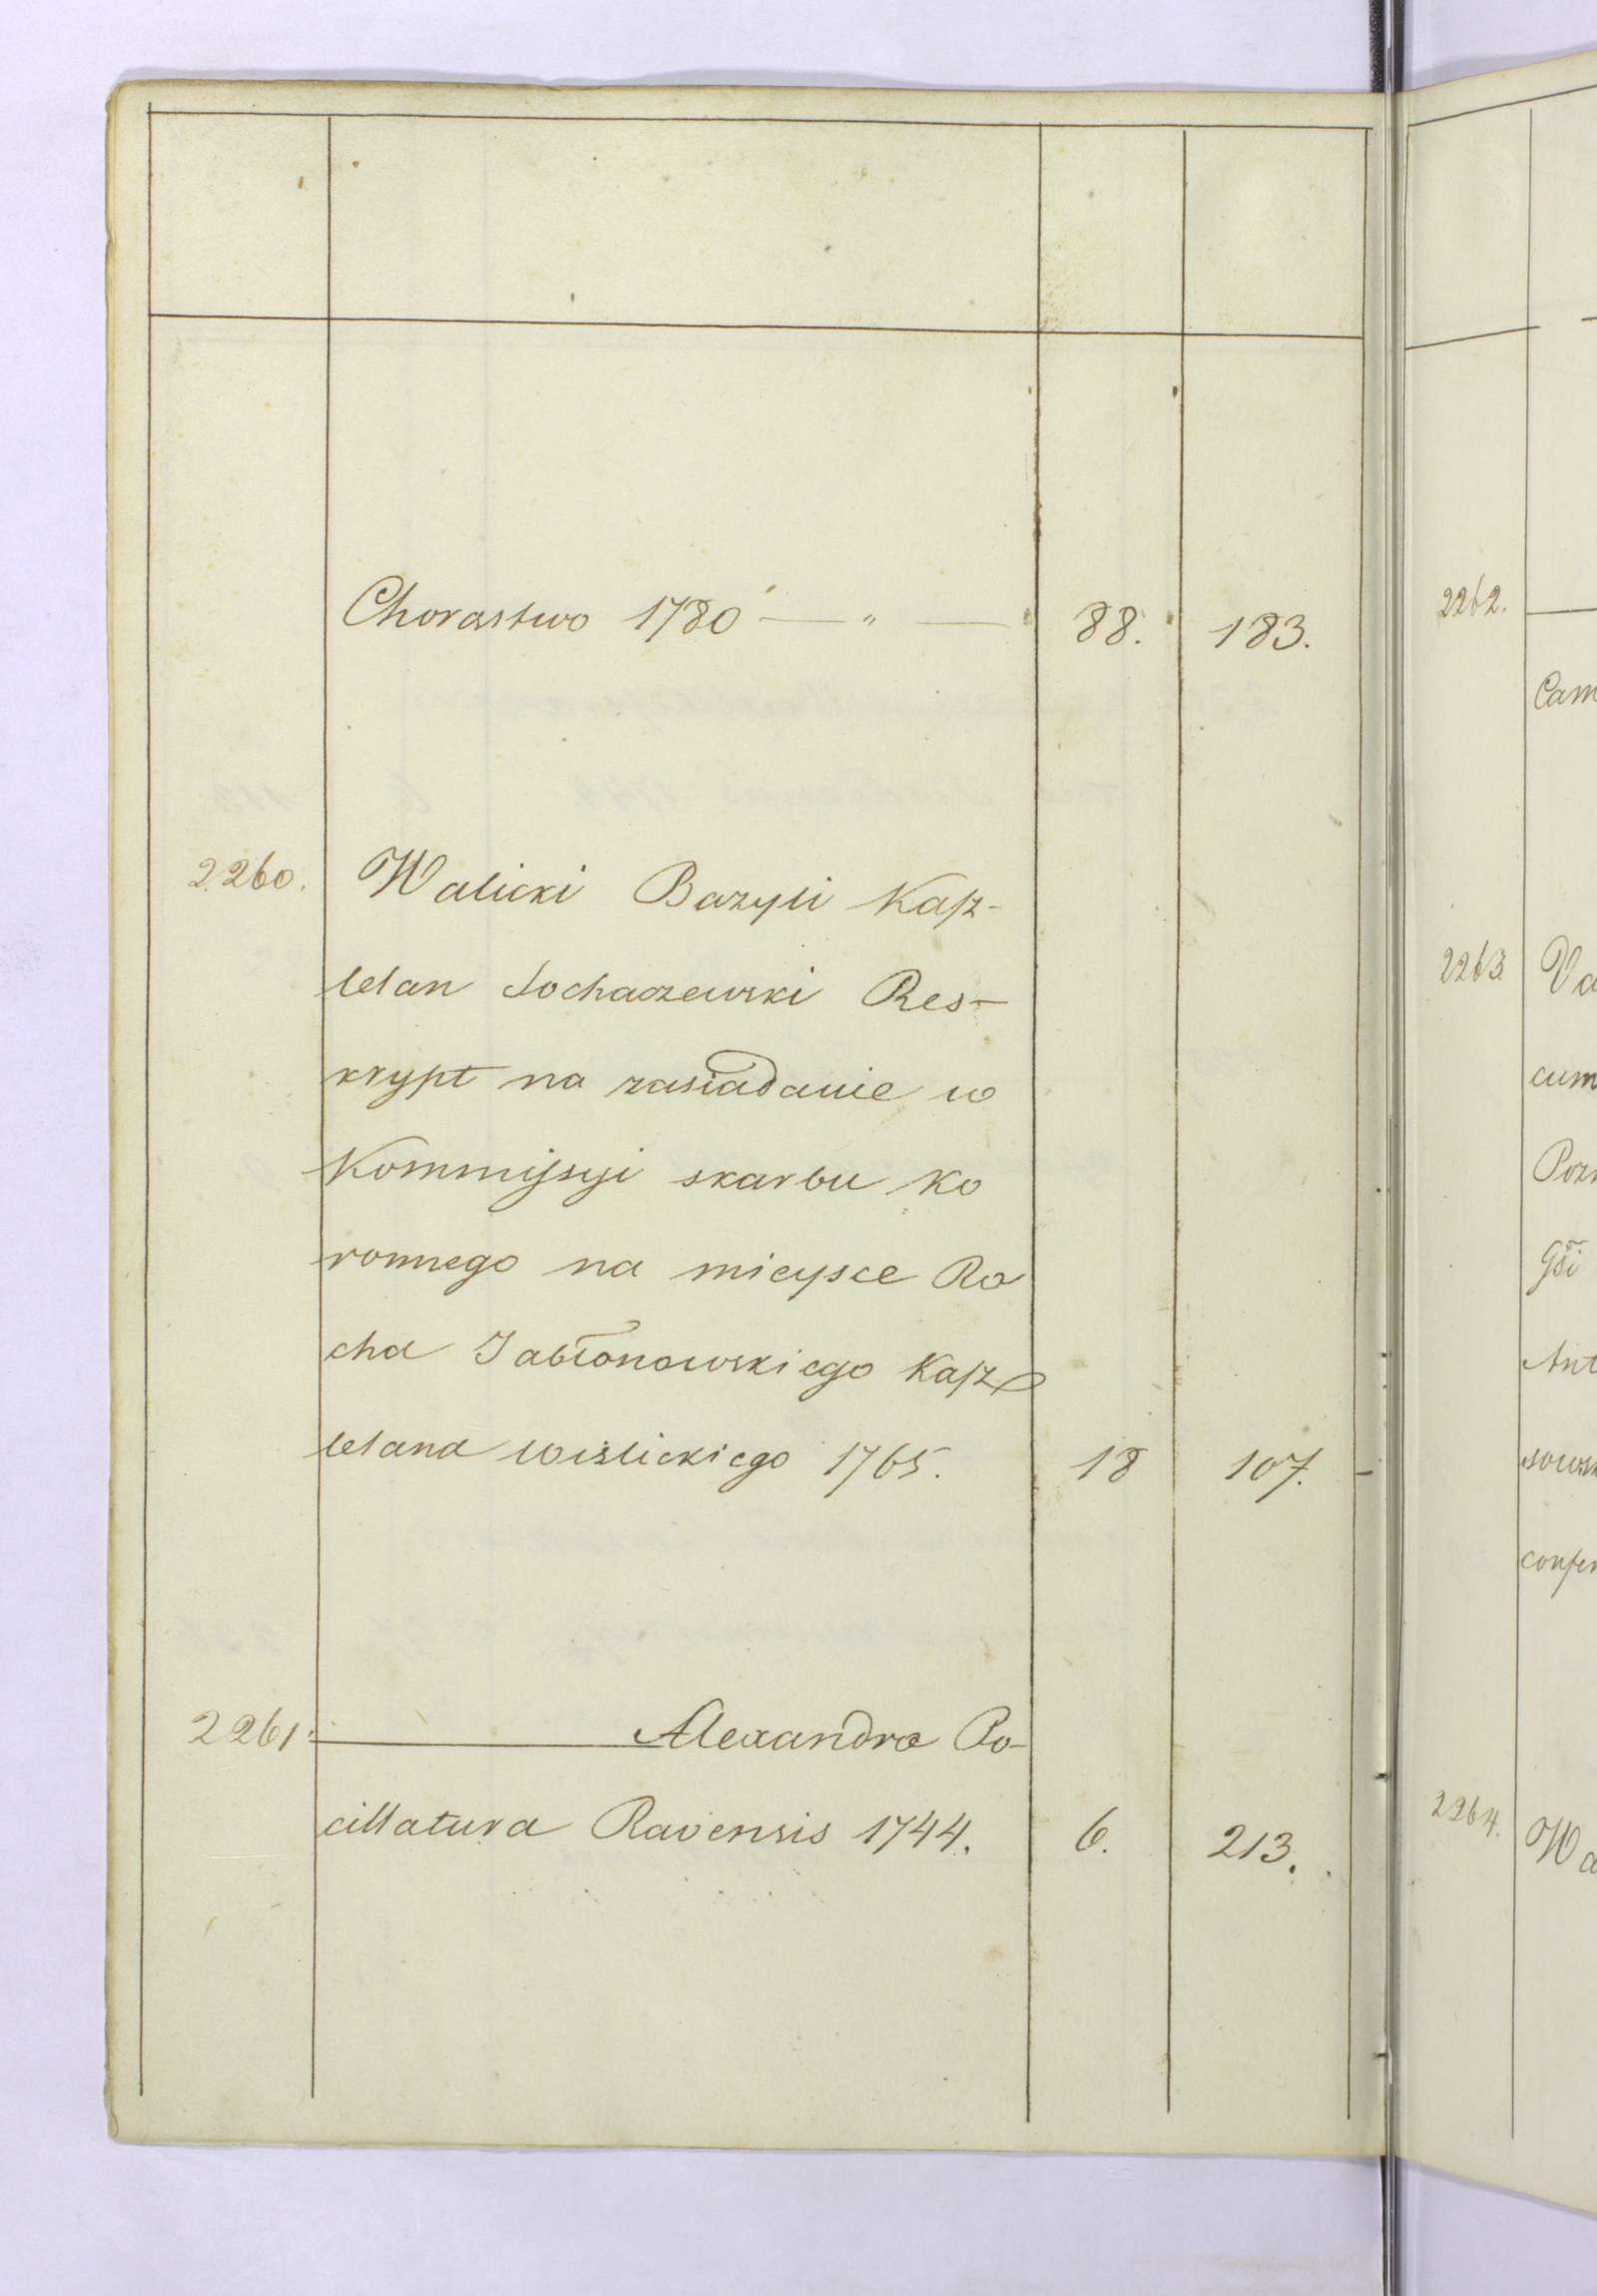 Chorastwo 1780 — „ — 88. 183.
2260. Walicki Bazyli Kasz-
telan Sochaczewski Res-
krypt na zasiadanie w
Kommissyi skarbu Ko
ronnego na mieysce Ro
cha Jabłonowskiego Kasz
telana wiślickiego 1765. 18 107.
2261. ——— Alexandra Po-
cillatura Ravensis 1744. 6. 213.
2262.
Cam
2263 Va
cum
Poz
Gsi
Ant
sowsk
confer
2264. Wa